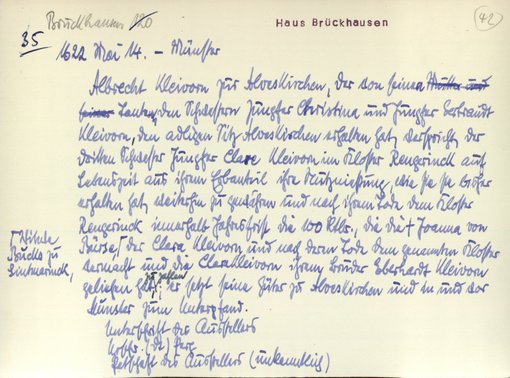 Bruckhausen 120
Haus Brückhausen
42
35
1622 Mai 14. – Münster
Albrecht Kleivorn zur Alveskirchen, der von seinen Mutter und
seiner Tanten, den Schwestern Jungfer Christina und Jungfer Gerbrandt
Kleivorn, den adligen Sitz Alveskirchen erhalten hat, verspricht der
dritten Schwester Jungfer Clare Kleivorn im Kloster Rengerinck auf
Lebenszeit aus ihrem Erbanteil ihre Nutzniessung, wie sie sie bisher
erhalten hat, weiterhin zu gewähren und nach ihrem Tode dem Kloster
Rengerinck innerhalb Jahresfrist die 100 Rtlr., die die † Joanna von
Bürse, ⌈ der Clara Kleivorn und nach deren Tode dem genannten Kloster
⌈ Witwe
Bucks zu
Sintmarinck,
vermacht und die Clara Kleivorn ihrem Bruder Eberhardt Kleivorn
geliehen hat, zu zahlen der setzt seine Güter zu Alveskirchen und in und vor
Münster zum Unterpfand.
Unterschrift des Ausstellers
Kopfr. (dt) Perg.
Petschaft des Ausstellers (unkenntlich)